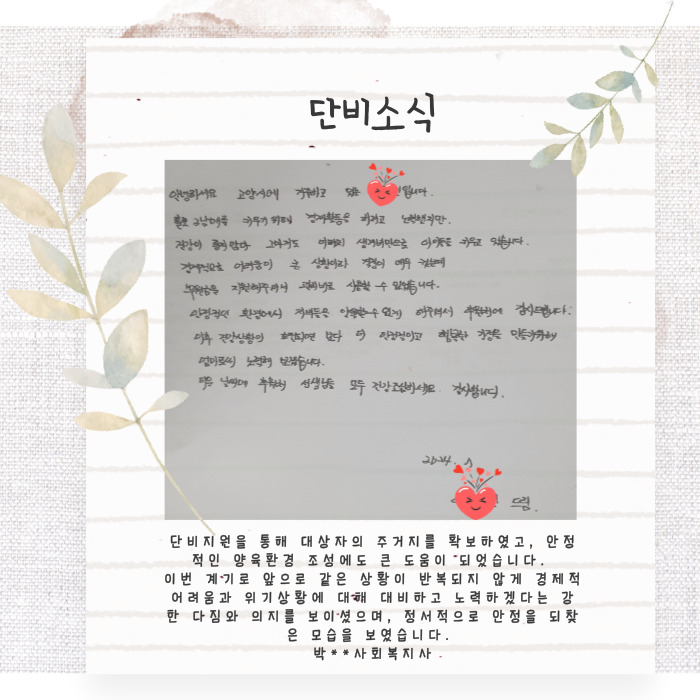 단비소식
안녕하세요 고양시에 거주하고 있는 입니다.
홀로 키우기 위해 경제활동은 하려고 노력했지만,
건강이 좋지 않다 이어서 생계비만으로 아이들을 키우고 있습니다.
경제적으로 어려움이 큰 상황이라 걱정이 매우 컸는데
후원금을 지원해주셔서 관리비로 사용할 수 있었습니다.
안정적인 환경에서 자녀들을 양육할 수 있게 해주셔서 후원처에 감사드립니다.
이후 건강상황이 호전되면 보다 더 안정적이고 행복한 가정을 만들기위해
엄마로써 노력해 보겠습니다.
더운 날씨에 후원처 선생님들 모두 건강조심하세요 감사합니다.
2024.
드림.
단비지원을 통해 대상자의 주거지를 확보하였고, 안정
적인 양육환경 조성에도 큰 도움이 되었습니다.
이번 계기로 앞으로 같은 상황이 반복되지 않게 경제적
어려움과 위기상황에 대해 대비하고 노력하겠다는 강
한 다짐와 의지를 보이셨으며, 정서적으로 안정을 되찾
은 모습을 보였습니다.
박**사회복지사